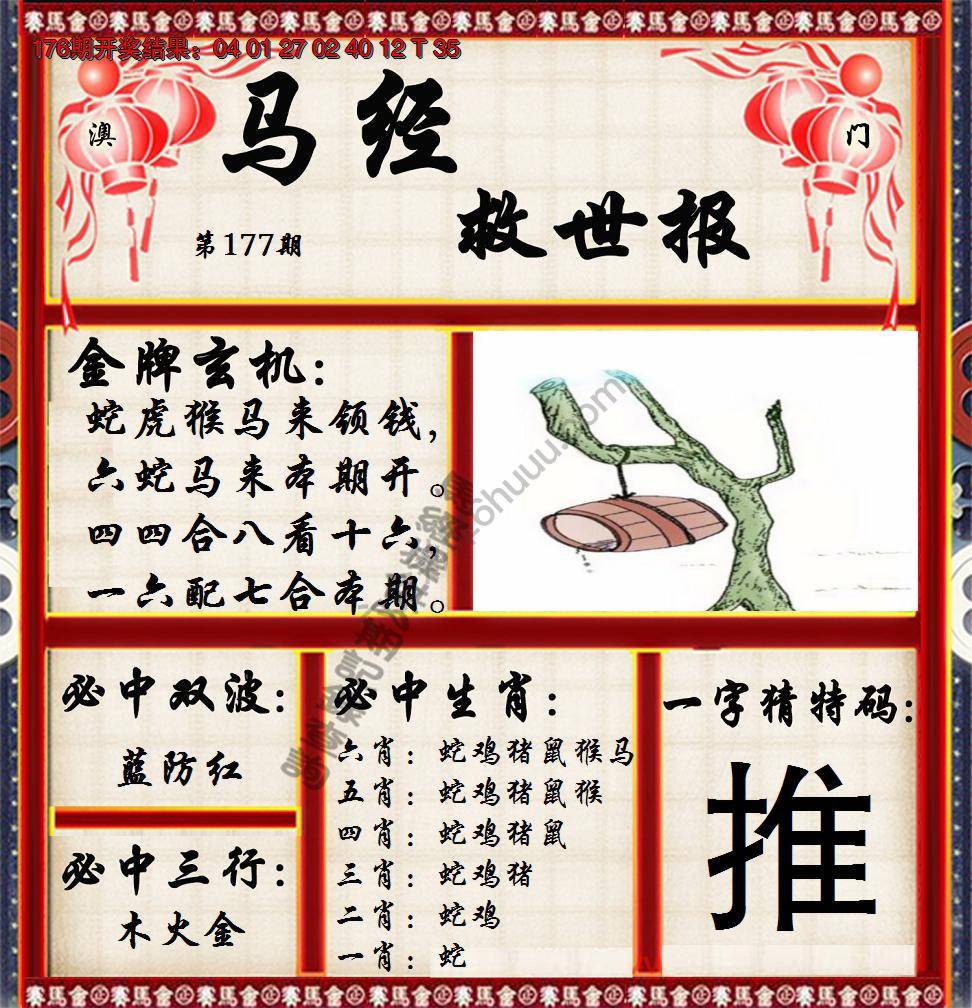 赛馬會
176期开奖结果：04 01 27 02 40 12 T 35
澳
门
马经
救世报
第177期
金牌玄机：
蛇虎猴马来领钱，
六蛇马来本期开。
四四合八看十六，
一六配七合本期。
必中双波：
蓝防红
必中三行：
木火金
必中生肖：
六肖：蛇鸡猪鼠猴马
五肖：蛇鸡猪鼠猴
四肖：蛇鸡猪鼠
三肖：蛇鸡猪
二肖：蛇鸡
一肖：蛇
一字猜特码：
推